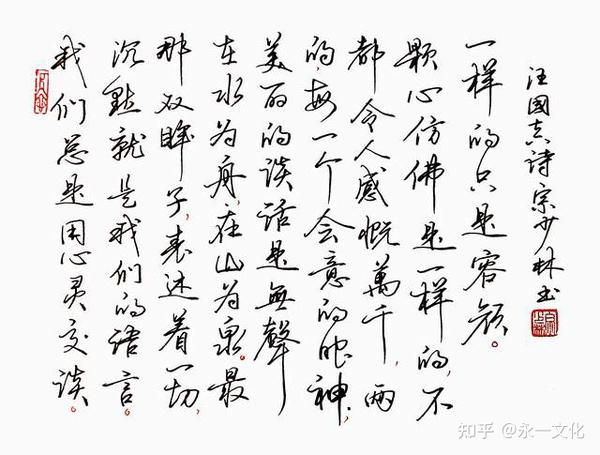 我们总是用心灵交谈。
沉默就是我们的语言。
那双眸子，表述着一切，
在水为舟，在山为泉。最
美丽的谈话是無聲
的，每一个会意的眼神，
都令人感慨萬千，两
颗心仿佛是一样的，不
一样的只是容颜。
汪國真詩宗少林书
知乎 @永一文化